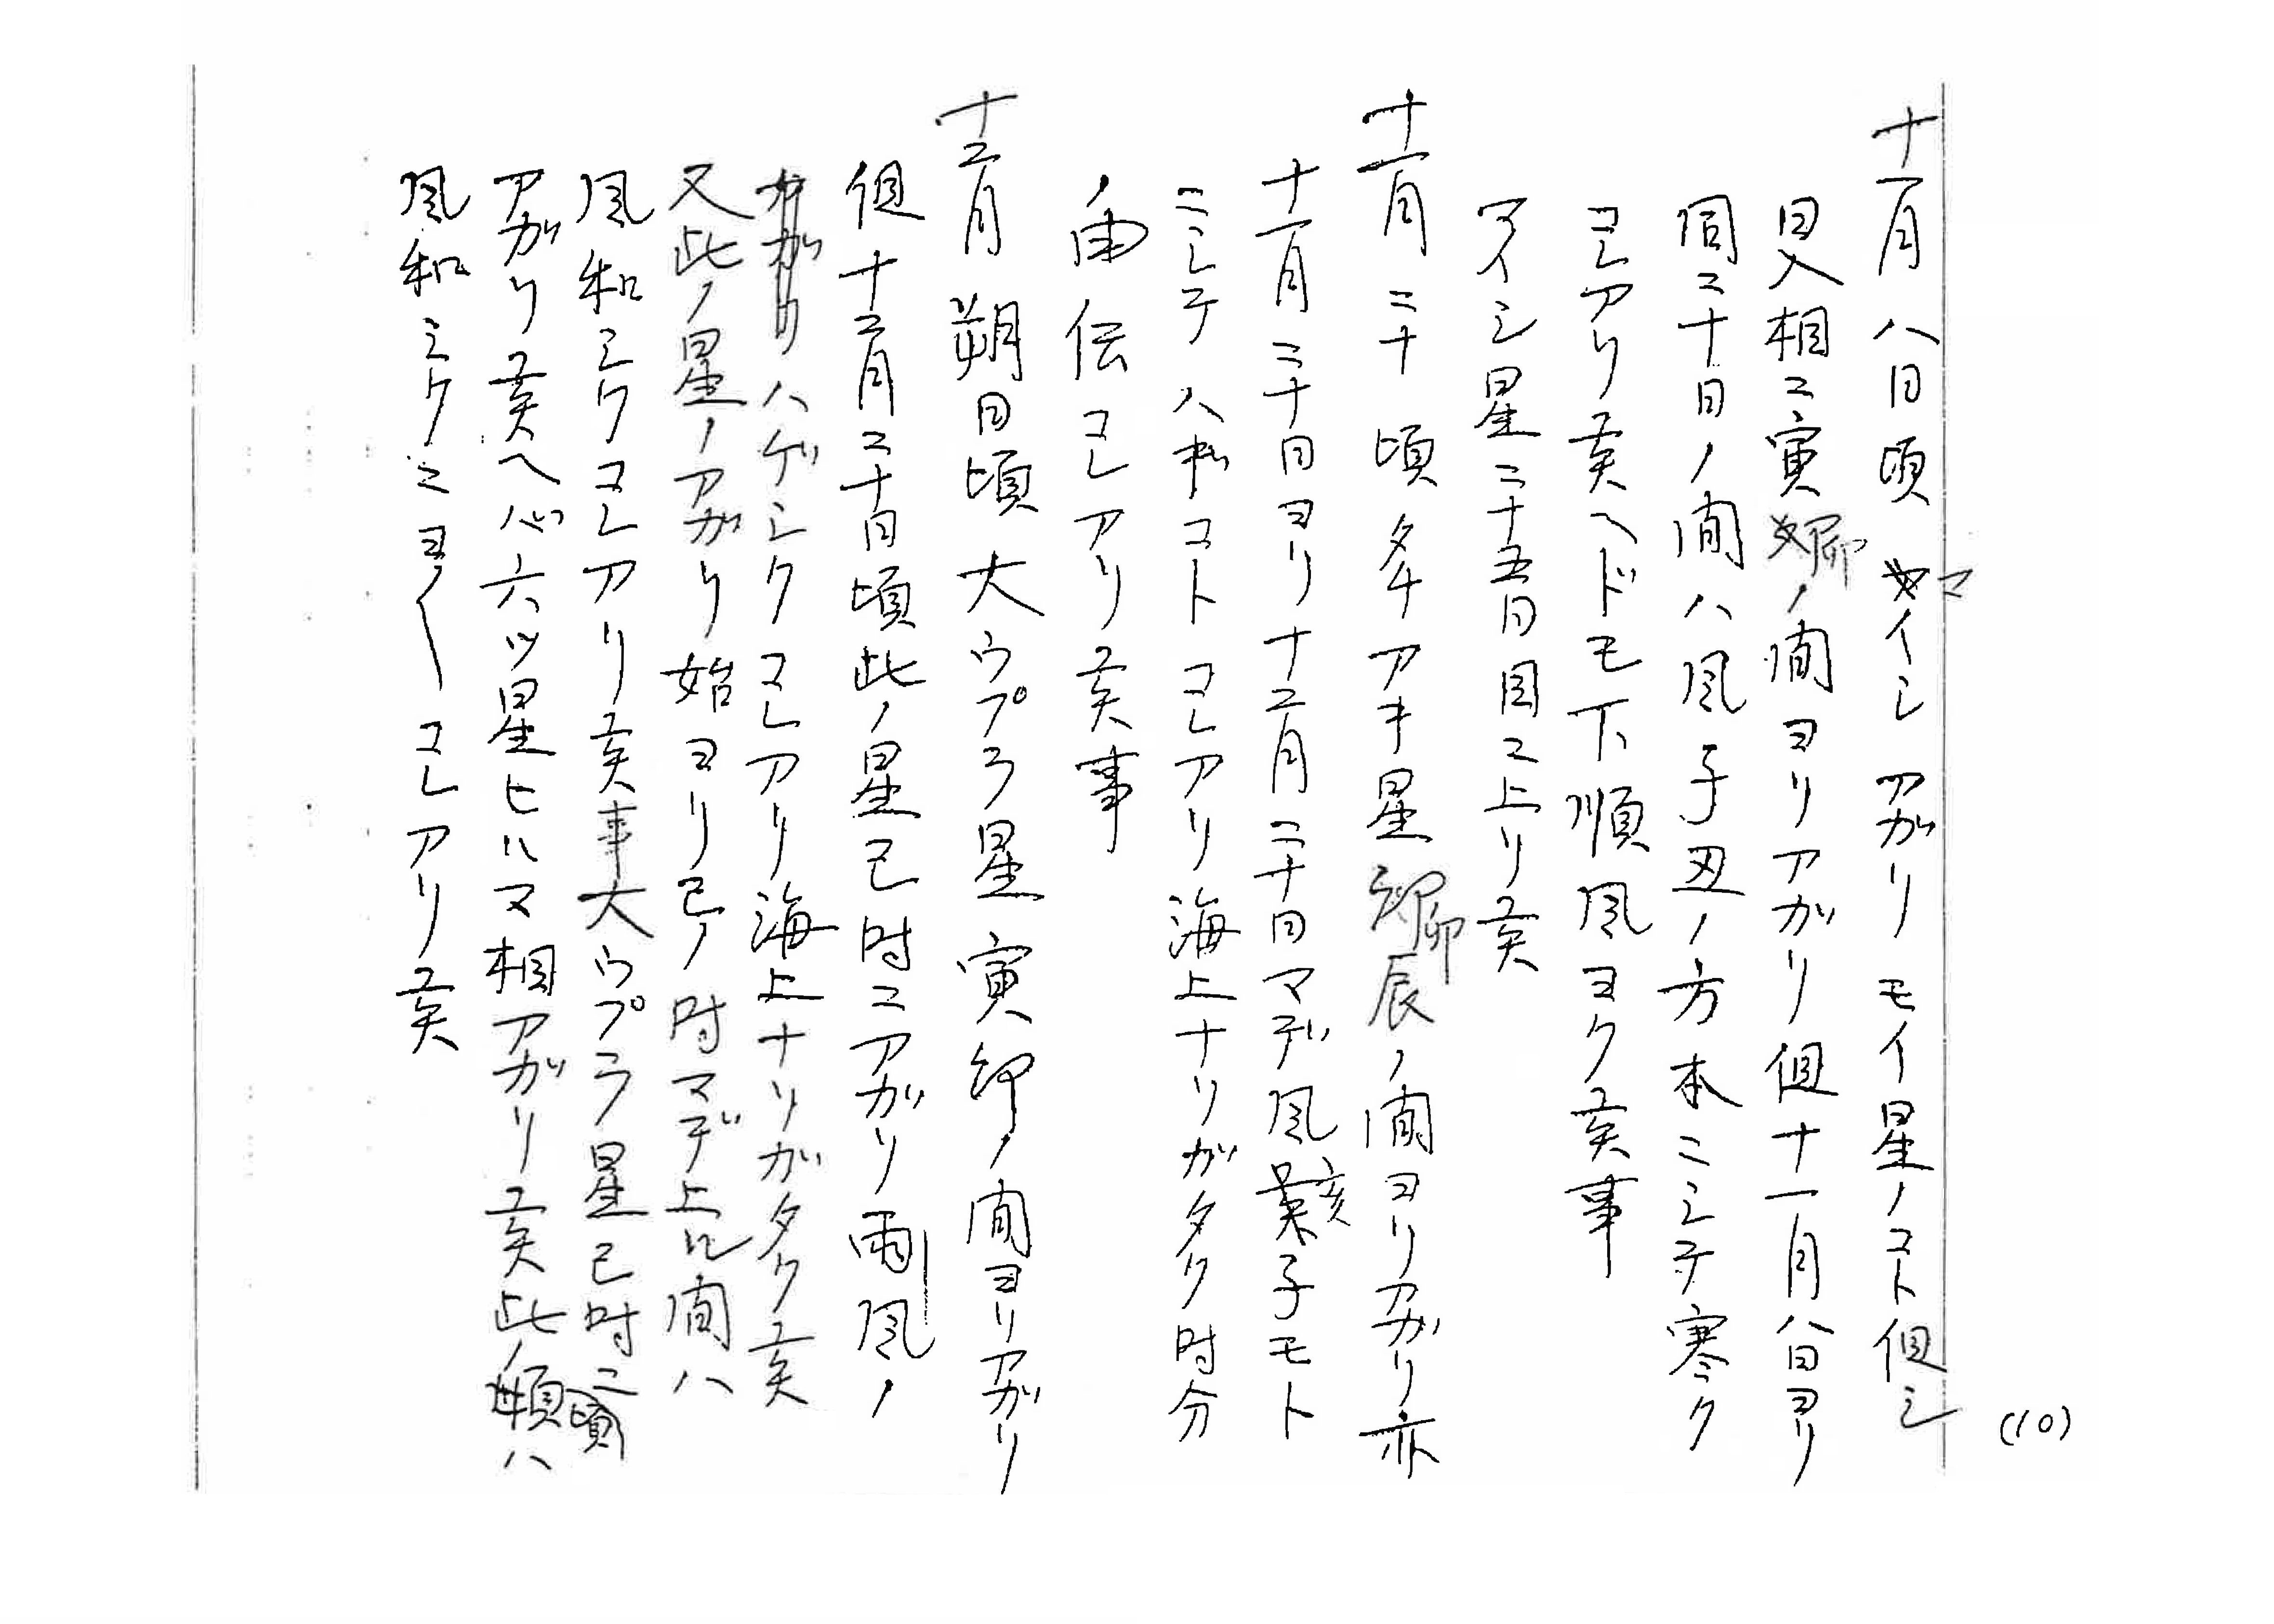 (10)
十一月八日頃 マイシ アガリ モイ星ノコト但シ
日入相ニ寅卯ノ間ヨリアガリ但十一月八日ヨリ
同二十日ノ間ハ風子丑ノ方本ニシテ寒ク
コレアリ実ヘドモ下順風ヨク実事
マイシ星二十五日目ニ上リ実
十一月二十頃タチアキ星卯辰ノ間ヨリアガリ亦
十一月二十日ヨリ十二月二十日マデ風亥子モト
ニシテ八私コトコレアリ海上ナリガタク時分
ノ由伝コレアリ実事
十二月朔日頃大ウプラ星寅卯ノ間ヨリアガリ
但十二月二十日頃此ノ星巳時ニアガリ雨風ノ
ハゲシクコレアリ海上ナリガタク実
又此ノ星ノアガリ始ヨリ巳ノ時マデ上ル間ハ
風和ミクコレアリ実事大ウプラ星巳時ニ
アガリ実ヘバ六ツ星ヒルマ相アガリ実此ノ頃ハ
風和ミクニヨノ〱コレアリ実